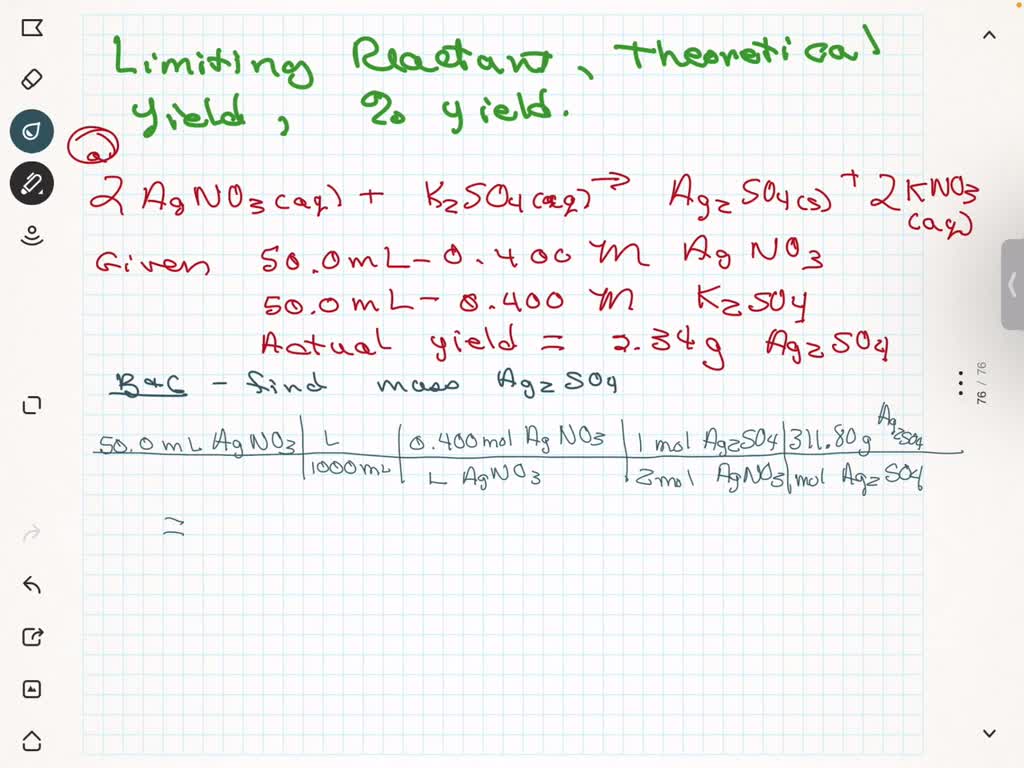 Limiting Reactant, theoretical
yield, % yield.
a
2 AgNO3(aq) + K2SO4(aq) → Ag2SO4(s) + 2KNO3
(aq)
Given 50.0mL-0.400 M AgNO3
50.0mL-0.400 M K2SO4
Actual yield = 2.34g Ag2SO4
B&C - find mass Ag2SO4
50.0mL AgNO3 | L | 0.400mol AgNO3 | 1 mol Ag2SO4 | 311.80g Ag2SO4
1000mL | L AgNO3 | 2mol AgNO3 | mol Ag2SO4
=
76 / 76